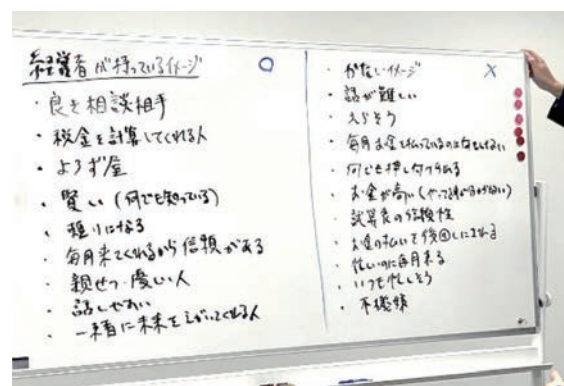 経営者が持っているイメージ ○
・良き相談相手
・税金を計算してくれる人
・よろず屋
・賢い(何でも知っている)
・頼りになる
・毎月来てくれるから信頼がある
・親せつ・優しい人
・話しやすい
・一緒に未来をえがいてくれる人
・かたいイメージ ×
・話が難しい
・えらそう
・毎月お金を払っているのに何もしてない
・何でも押し付ける
・お金が高い
・試算表の信憑性
・お金の払いを後回しにされる
・忙しいのに毎月来る
・いつも忙しそう
・不機嫌